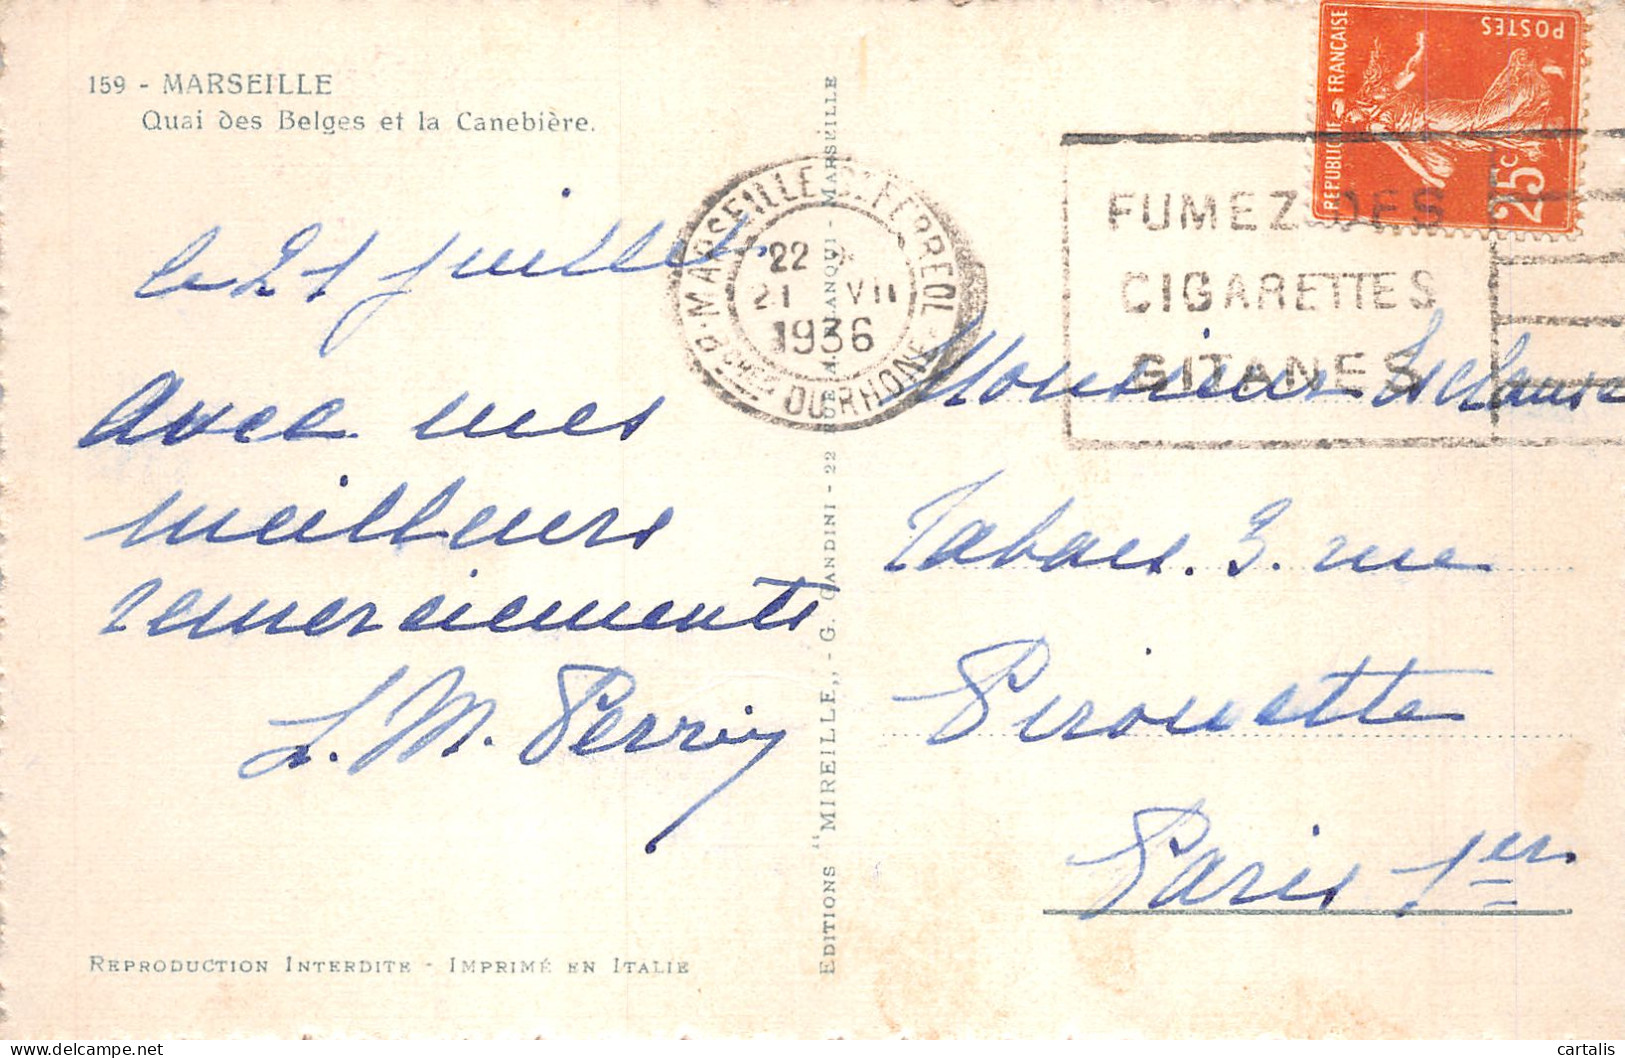 159 - MARSEILLE
Quai des Belges et la Canebière.
le 21 juillet
Avec mes
meilleurs
remerciements
L. M. Perrin
REPRODUCTION INTERDITE - IMPRIMÉ EN ITALIE
EDITIONS "MIREILLE„ - G. GANDINI - 22 RUE A. BLANQUI - MARSEILLE
MARSEILLE St FERREOL
22
21 VII
1936
Bches DU RHONE
REPUBLIQUE FRANÇAISE
POSTES
25c
FUMEZ DES
CIGARETTES
GITANES
Monsieur
Tabacs. 3. rue
Pirouette
Paris 1er
cartalis